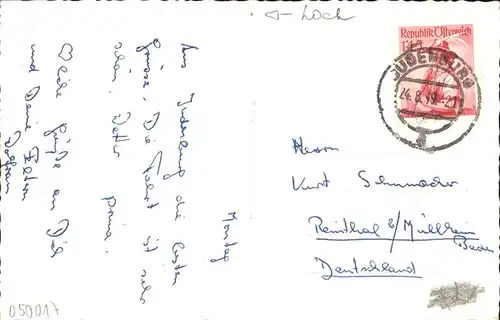 ← Loch
Republik Österreich
JUDENBURG
24.8.49.-21
Montag
Aus Judenburg die besten
Grüsse. Die Fahrt ist sehr
schön. Wetter prima.
Viele Grüße an Dich
und Deine Eltern
Herrn
Kurt Schumacher
Reinthal b/Müllheim
Baden
Deutschland
050017